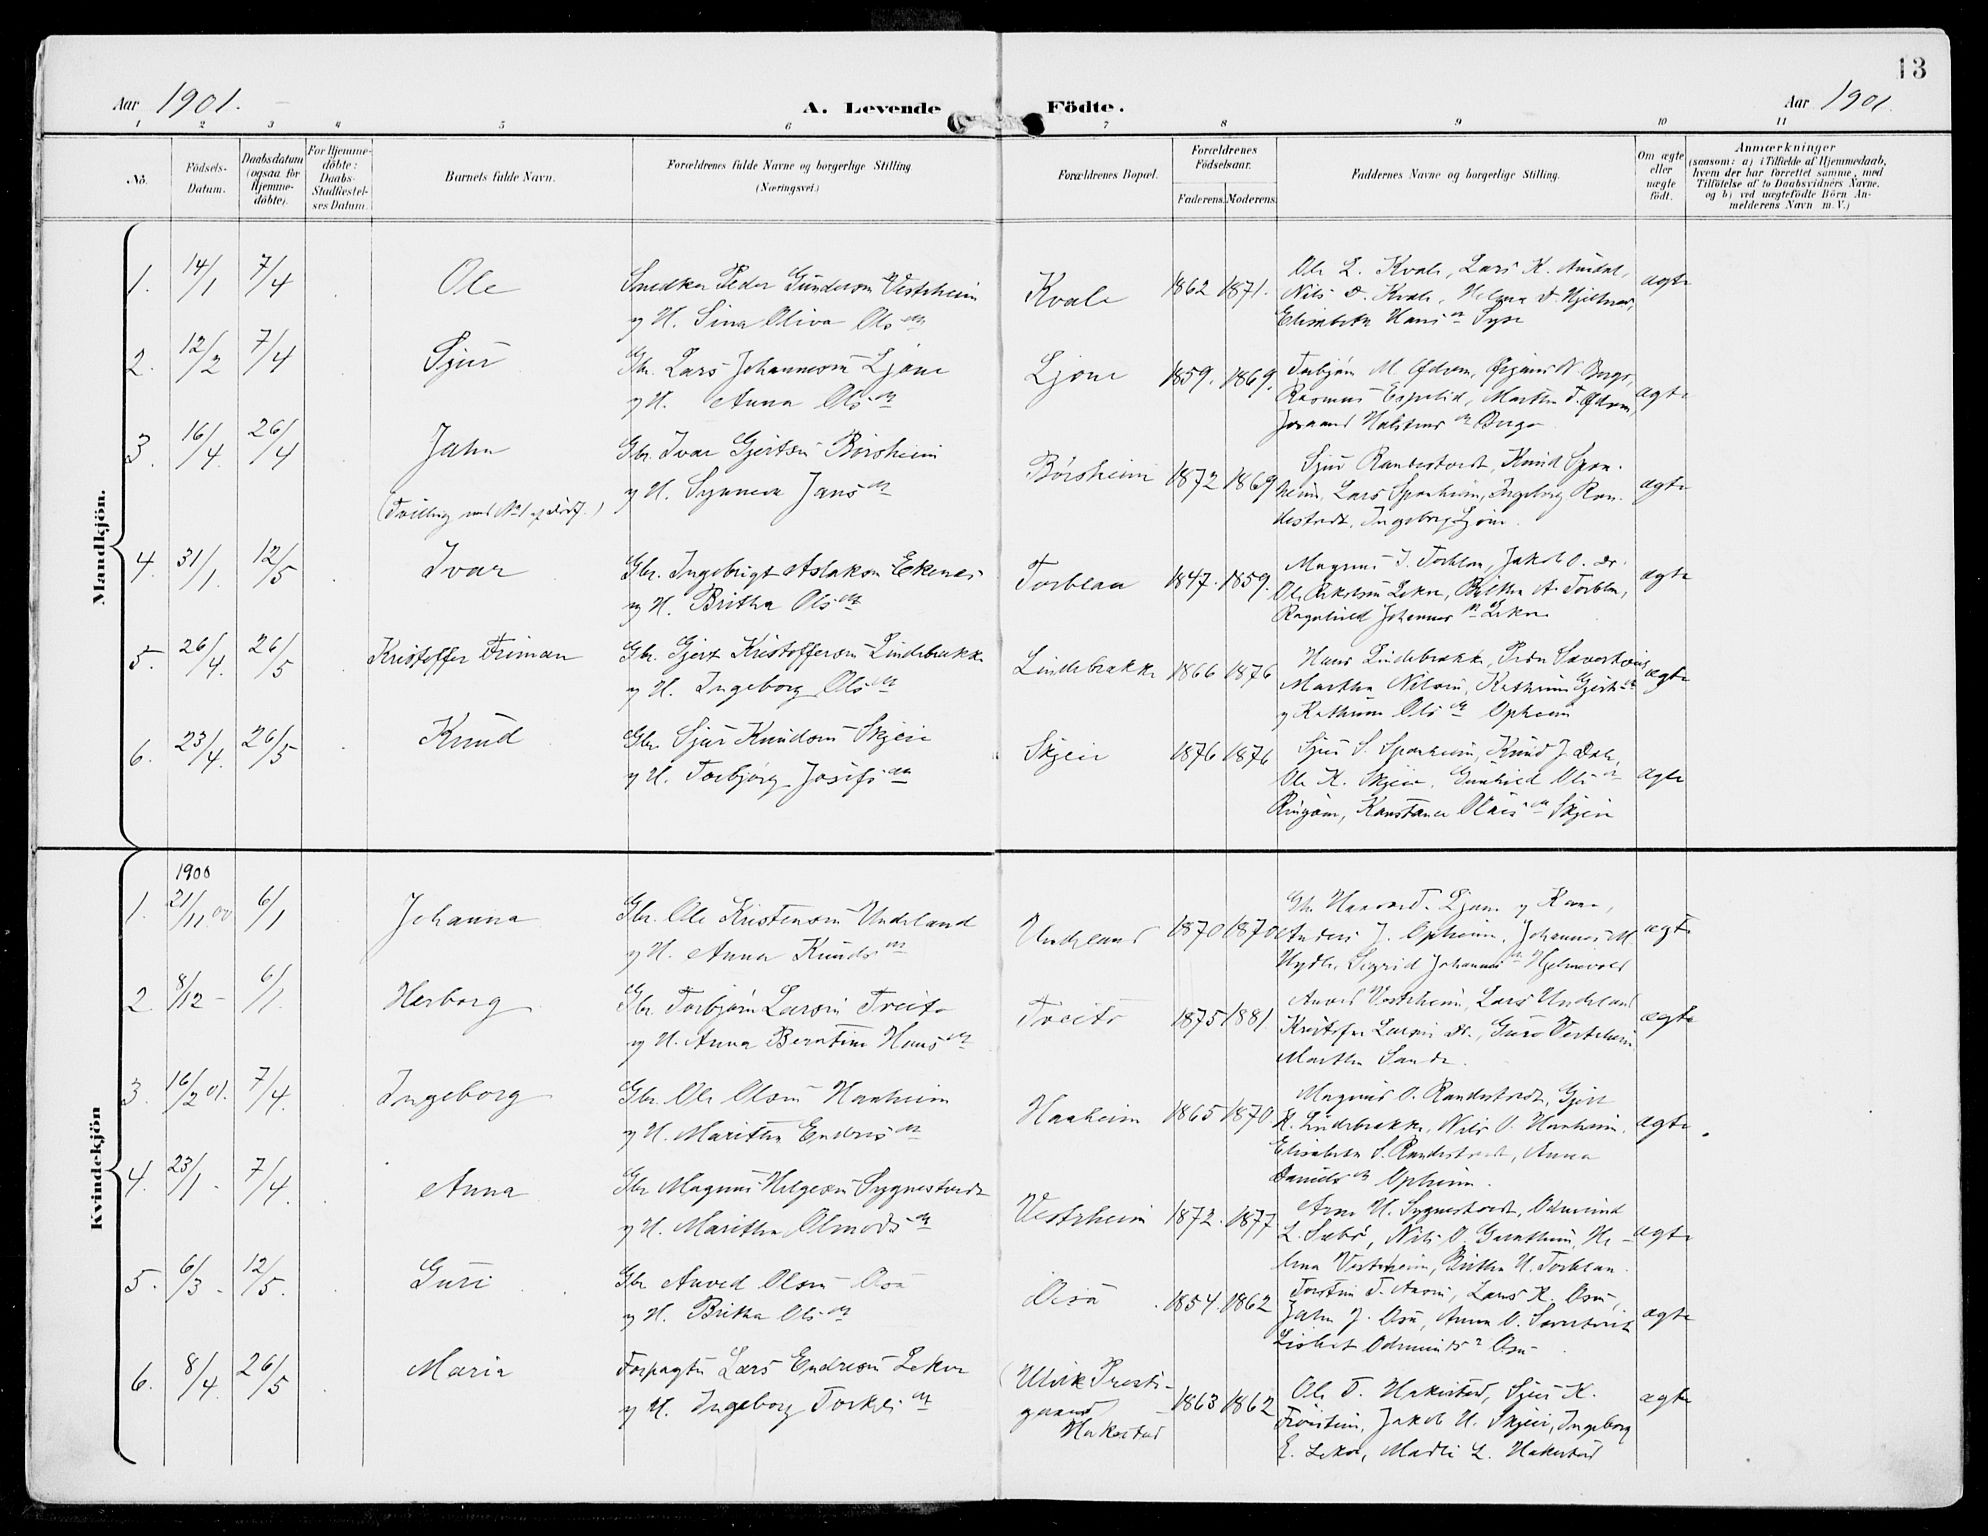 13
Aar 1901.
A. Levende Födte.
Aar 1901.
1 2 3 4 5 6 7 8 9 10 11
No.
Födsels-
Datum.
Daabsdatum
(ogsaa for
Hjemme-
döbte).
For Hjemme-
döbte:
Daabs-
Stadfæstel-
ses Datum.
Barnets fulde Navn.
Forældrenes fulde Navne og borgerlige Stilling.
(Næringsvei.)
Forældrenes Bopæl.
Forældrenes
Födselsaar.
Faderens. Moderens.
Faddernes Navne og borgerlige Stilling.
Om ægte
eller
uægte
födt.
Anmærkninger
(saasom: a) i Tilfælde af Hjemmedaab,
hvem der har forrettet samme, med
Tilföielse af to Daabsvidners Navne.
og b) ved uægtefödte Börn An-
melderens Navn m. V.)
Mandkjön.
1. 14/1 7/4 Ole
Snedker Peder Gunderson Vestrheim
og H. Sina Oliva Olsdtr
Kvale 1862 1871.
Ole L. Kvale, Lars K.
Nils D. Kvale, Helena D. Hjeltnes,
Elisabeth Hansdtr Syse
ægte
2. 12/2 7/4 Sjur
Gbr. Lars Johanneson Ljone
og H. Anna Olsdtr
Ljone 1859. 1869.
Torbjörn M.
Rasmus Espelid, Martha T.
Halstensdtr Berge
ægte
3. 16/4 26/4 Jahn
Gbr. Ivar Gjertsen Börsheim
og H. Synneva Jansdtr
Börsheim 1872 1869
Sjur Randestordt, Knud Span-
heim, Lars Spanheim, Ingeborg Ran-
destordt, Ingeborg Ljone.
ægte
4. 31/1 12/5 Ivar
Gbr. Ingebrigt Aslakson Ekenes
og H. Britha Olsdtr
Torblaa 1847. 1859.
Magnus I. Torblaa, Jakob O. do.
Ole Lekve, Britha A. Torblaa,
Ragnhild Johannesdtr Lekve
ægte
5. 26/4. 26/5 Kristoffer Friman
Gbr. Gjert Kristofferson Lindebrække
og H. Ingeborg Olsdtr
Lindebrække 1866 1876
Hans Lindebrække,
Martha Nilsen, Kathrina Gjertsdtr
og Kathrina Olsdtr Opheim
ægte
6. 23/4. 26/5 Knud
Gbr. Sjur Knudson Skjeie
og H. Torbjörg Josefsdtr
Skjeie 1876 1876
Sjur S. Spanheim, Knud J. Dale,
Ole K. Skjeie, Gunhild Olsdtr
Ringöen, Konstance Olaisdtr Skjeie
ægte
Kvindekjön
1900
1. 21/11 00 6/1 Johanna
Gbr. Ole Kristenson Undeland
og H. Anna Knudsdtr
Undeland 1870 1870
Gbr. Haavard T. Ljone og Kone,
Anders J. Opheim, Johannes M.
Sigrid Johannesdtr Hjelmevold
ægte
2. 8/12 - 6/1. Herborg
Gbr. Torbjörn Larsen Tveito
og H. Anna Berntine Hansdtr
Tveito 1875 1881.
Anved Vestrheim, Lars Undeland
Kristofer Larsen do., Guro Vestrheim
Martha Sande.
ægte
3. 16/2 01. 7/4. Ingeborg
Gbr. Ole Olson Haaheim
og H. Maritha Endresdtr
Haaheim 1865 1870.
Magnus O. Randestordt, Gjert
K. Lindebrække, Nils O. Haaheim,
Elisabeth S. Randestordt, Anna
Danielsdtr Opheim.
ægte
4. 23/1 - 7/4. Anna
Gbr. Magnus Helgeson Sygnestordt
og H. Maritha Olmodsdtr
Vestrheim 1872. 1877
Arne H. Sygnestordt, Odmund
L. Sæbö, Nils O. He-
lena Vestrheim, Britha H. Torblaa.
ægte
5. 6/3 - 12/5. Guri
Gbr. Anved Olson Osa
og H. Britha Olsdtr
Osa 1854. 1862
Torstein T. Lars K. Osa,
Jahn J. Osa, Anna O.
Lisbet Odmundsdtr Osa
ægte
6. 8/4. 26/5 Maria
Forpagter Lars Endreson Lekve
og H. Ingeborg Torkelsdtr
(Ulvik Præste-
gaard)
Hakestad
1863 1862
Ole T. Hakestad, Sjur K.
Jakob H. Skjeie, Ingeborg
E. Lekve, Madli L. Hakestad
ægte